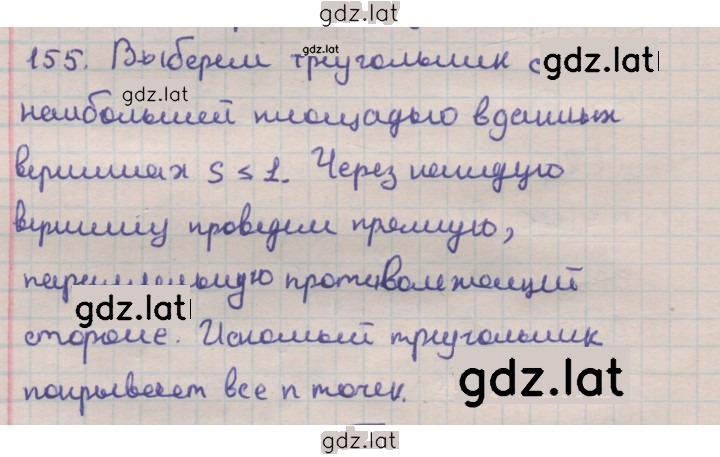 gdz.lat
155. Выберем треугольник с
gdz.lat
gdz.lat
gdz.lat
наибольшей площадью в данных
вершинах S ≤ 1. Через каждую
вершину проведем прямую,
параллельную противолежащей
gdz.lat
стороне. Искомый треугольник
покрывает все n точек.
gdz.lat
gdz.lat